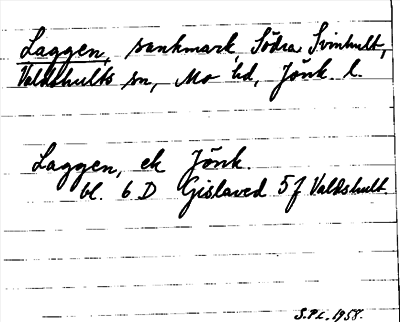 Laggen, sankmark, Södra Svinhult,
Valdshults sn, Mo hd, Jönk. l.
Laggen, ek Jönk.
bl. 6 D Gislaved 5 f Valdshult.
S.P.L. 1958.